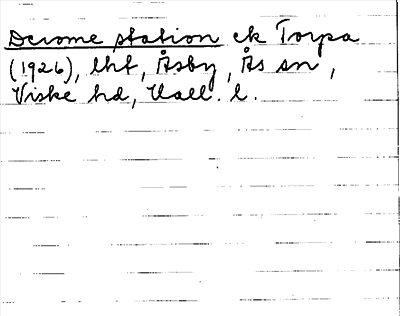 Derome station ek Torpa
(1926), lhf, Åsby, Ås sn,
Viske hd, Hall. l.